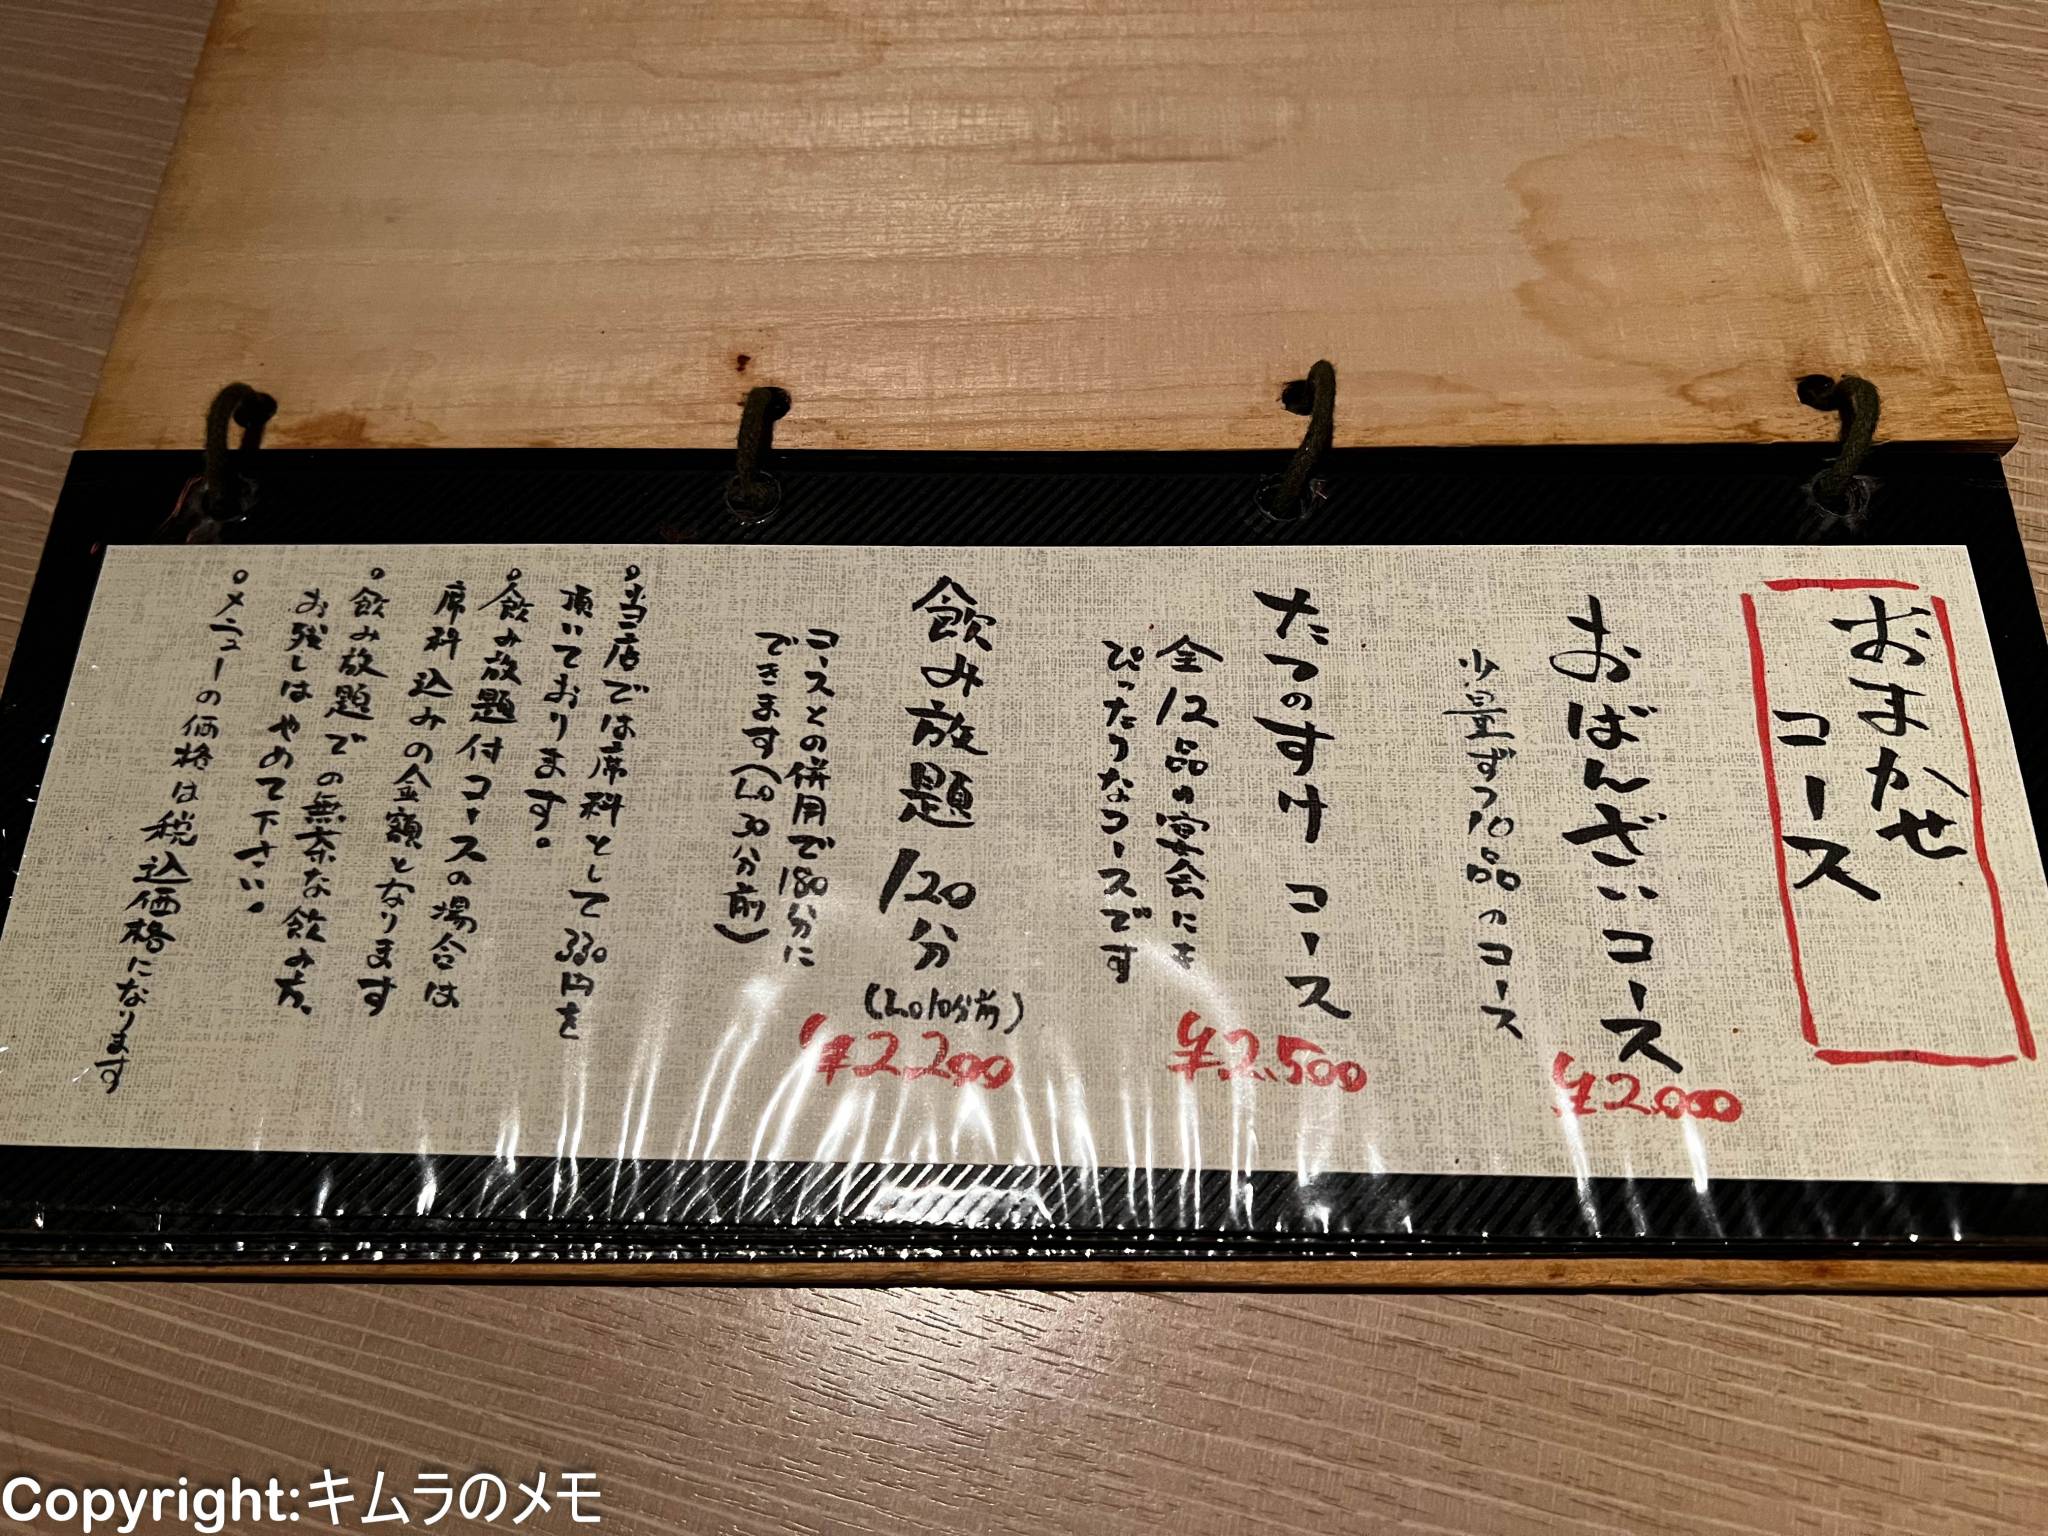 おまかせ
コース
おばんざいコース
¥2,000
少量ずつ10品のコース
たつのすけコース
¥2,500
全12品の宴会にも
ぴったりなコースです
飲み放題 120分
(L.O10分前)
¥2,200
コースとの併用で180分に
できます(L.O 30分前)
○当店では席料として330円を
頂いております。
○飲み放題付コースの場合は
席料込みの金額となります
○飲み放題での無茶な飲み方、
お残しはやめて下さい。
○メニューの価格は税込価格になります
Copyright:キムラのメモ